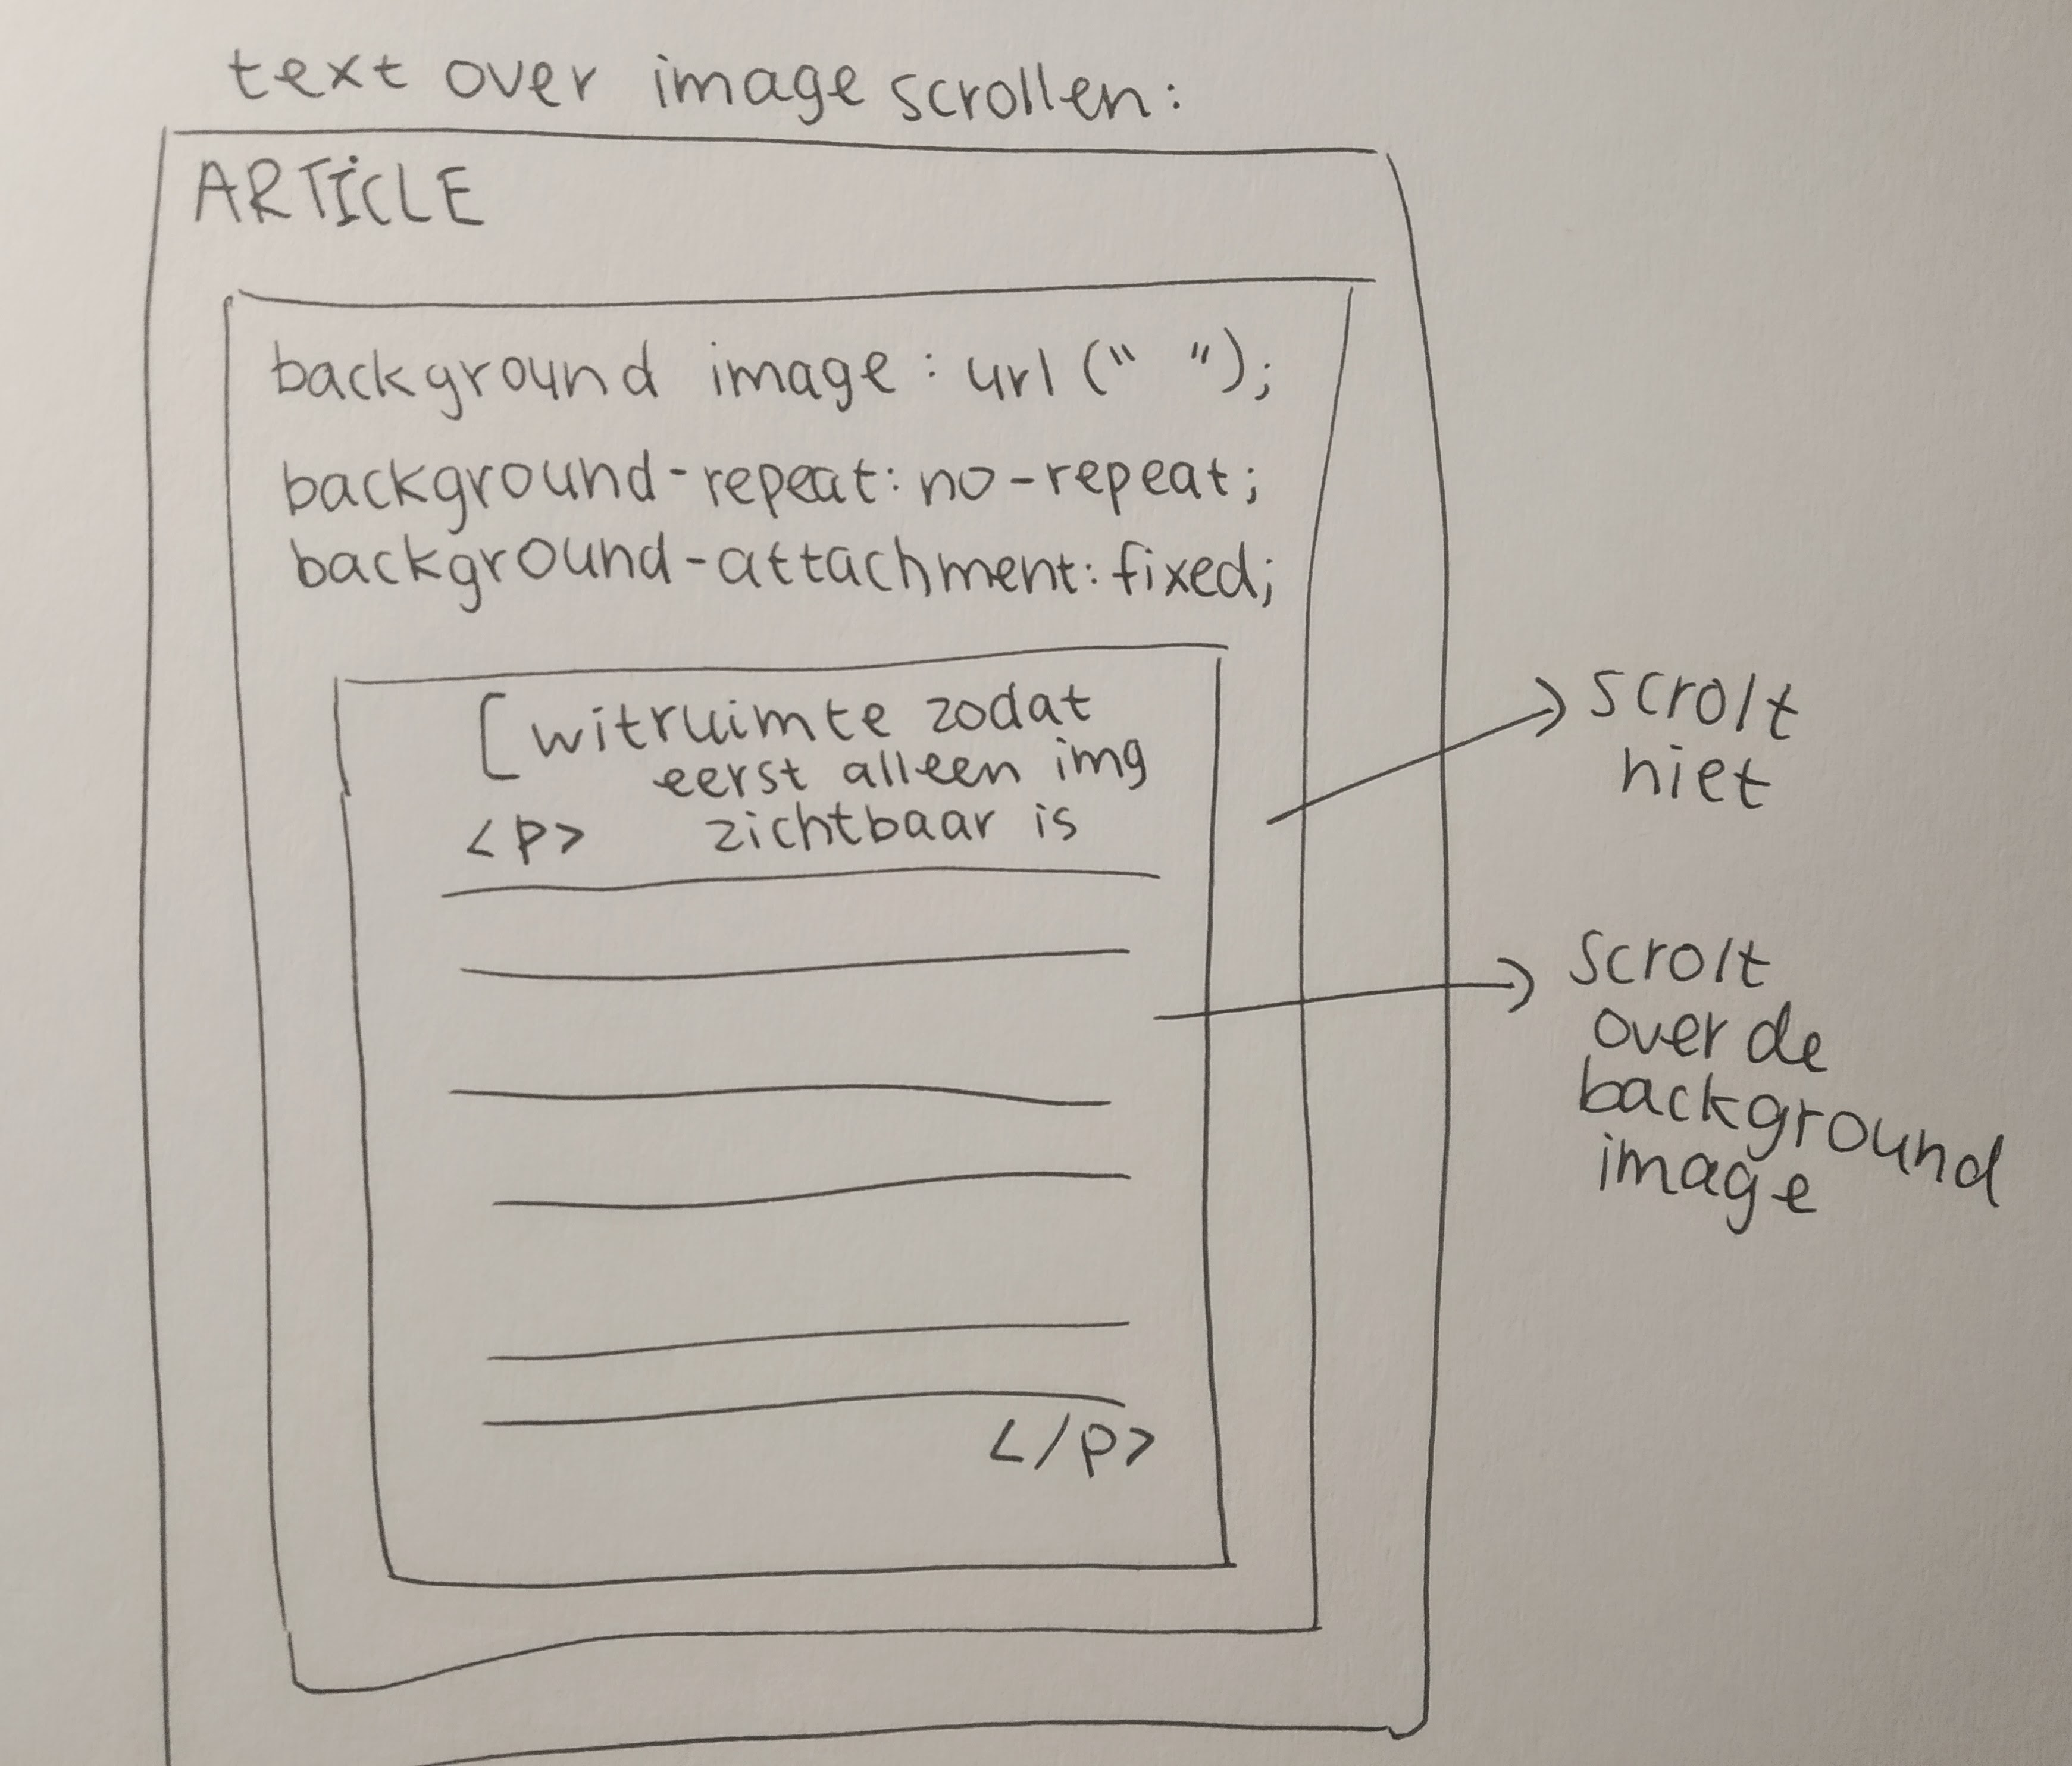 text over image scrollen:
ARTICLE
background image: url(" ");
background-repeat: no-repeat;
background-attachment: fixed;
[witruimte zodat
eerst alleen img
<p> zichtbaar is
</p>
scrolt
niet
scrolt
over de
background
image